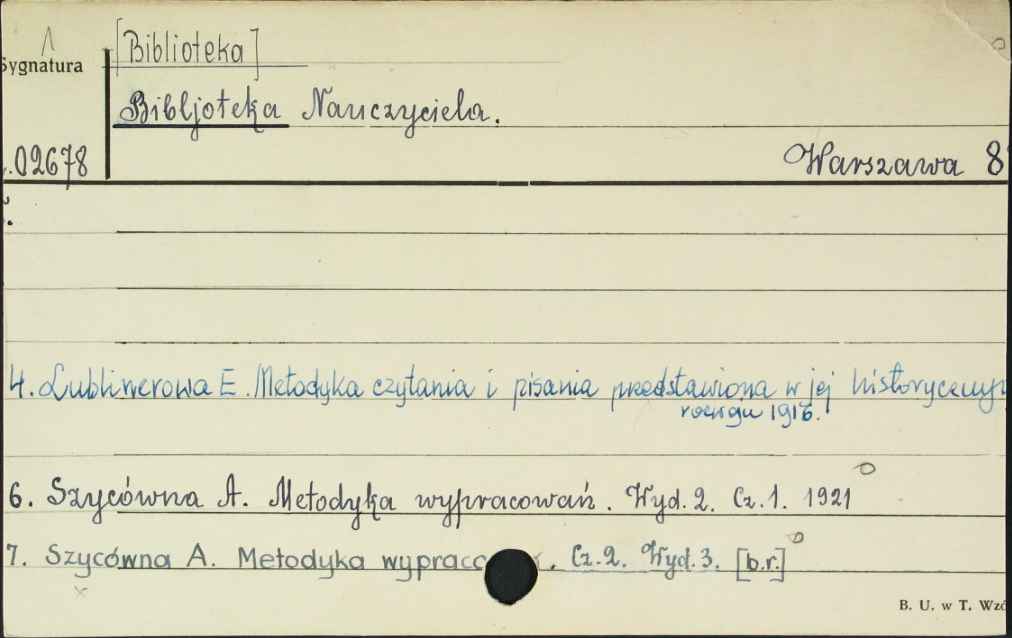 [Biblioteka]
Sygnatura
Bibljoteka Nauczyciela.
02678
Warszawa 8
4. Lublinerowa E. Metodyka czytania i pisania przedstawiona w jej
rozwoju 1916.
6. Szycówna A. Metodyka wypracowań. Wyd. 2. Cz. 1. 1921
7. Szycówna A. Metodyka . Cz. 2. Wyd. 3. [b.r.]
B. U. w T.